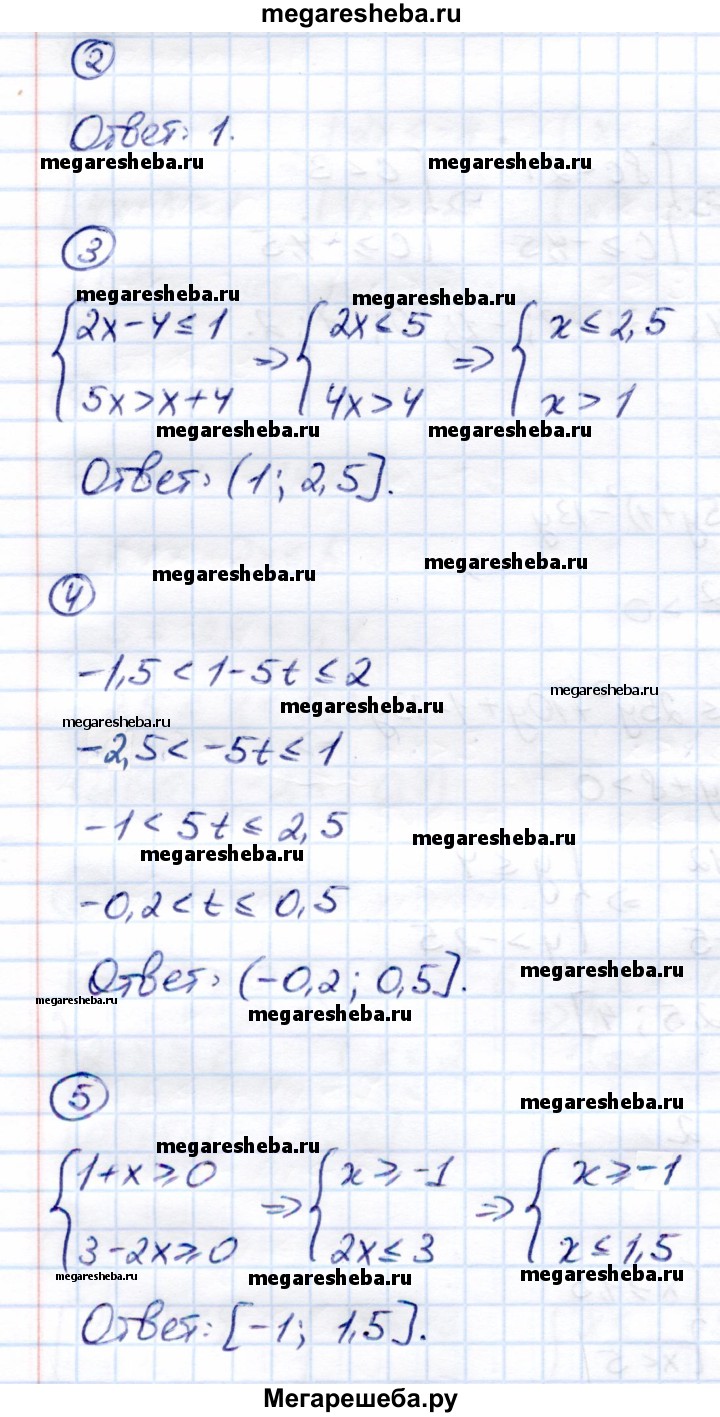 megaresheba.ru
2
Ответ: 1.
megaresheba.ru megaresheba.ru
3
megaresheba.ru megaresheba.ru
{2x-4≤1 => {2x≤5 => {x≤2,5
{5x>x+4 {4x>4 {x>1
megaresheba.ru megaresheba.ru
Ответ: (1; 2,5].
megaresheba.ru megaresheba.ru
4
-1,5<1-5t≤2
megaresheba.ru megaresheba.ru
megaresheba.ru
-2,5<-5t≤1
-1<5t≤2,5
megaresheba.ru megaresheba.ru
-0,2<t≤0,5
Ответ: (-0,2; 0,5].
megaresheba.ru
megaresheba.ru megaresheba.ru
5
megaresheba.ru
megaresheba.ru
{1+x≥0 => {x≥-1 => {x≥-1
{3-2x≥0 {2x≤3 {x≤1,5
megaresheba.ru megaresheba.ru megaresheba.ru
Ответ: [-1; 1,5].
Мегарешеба.ру